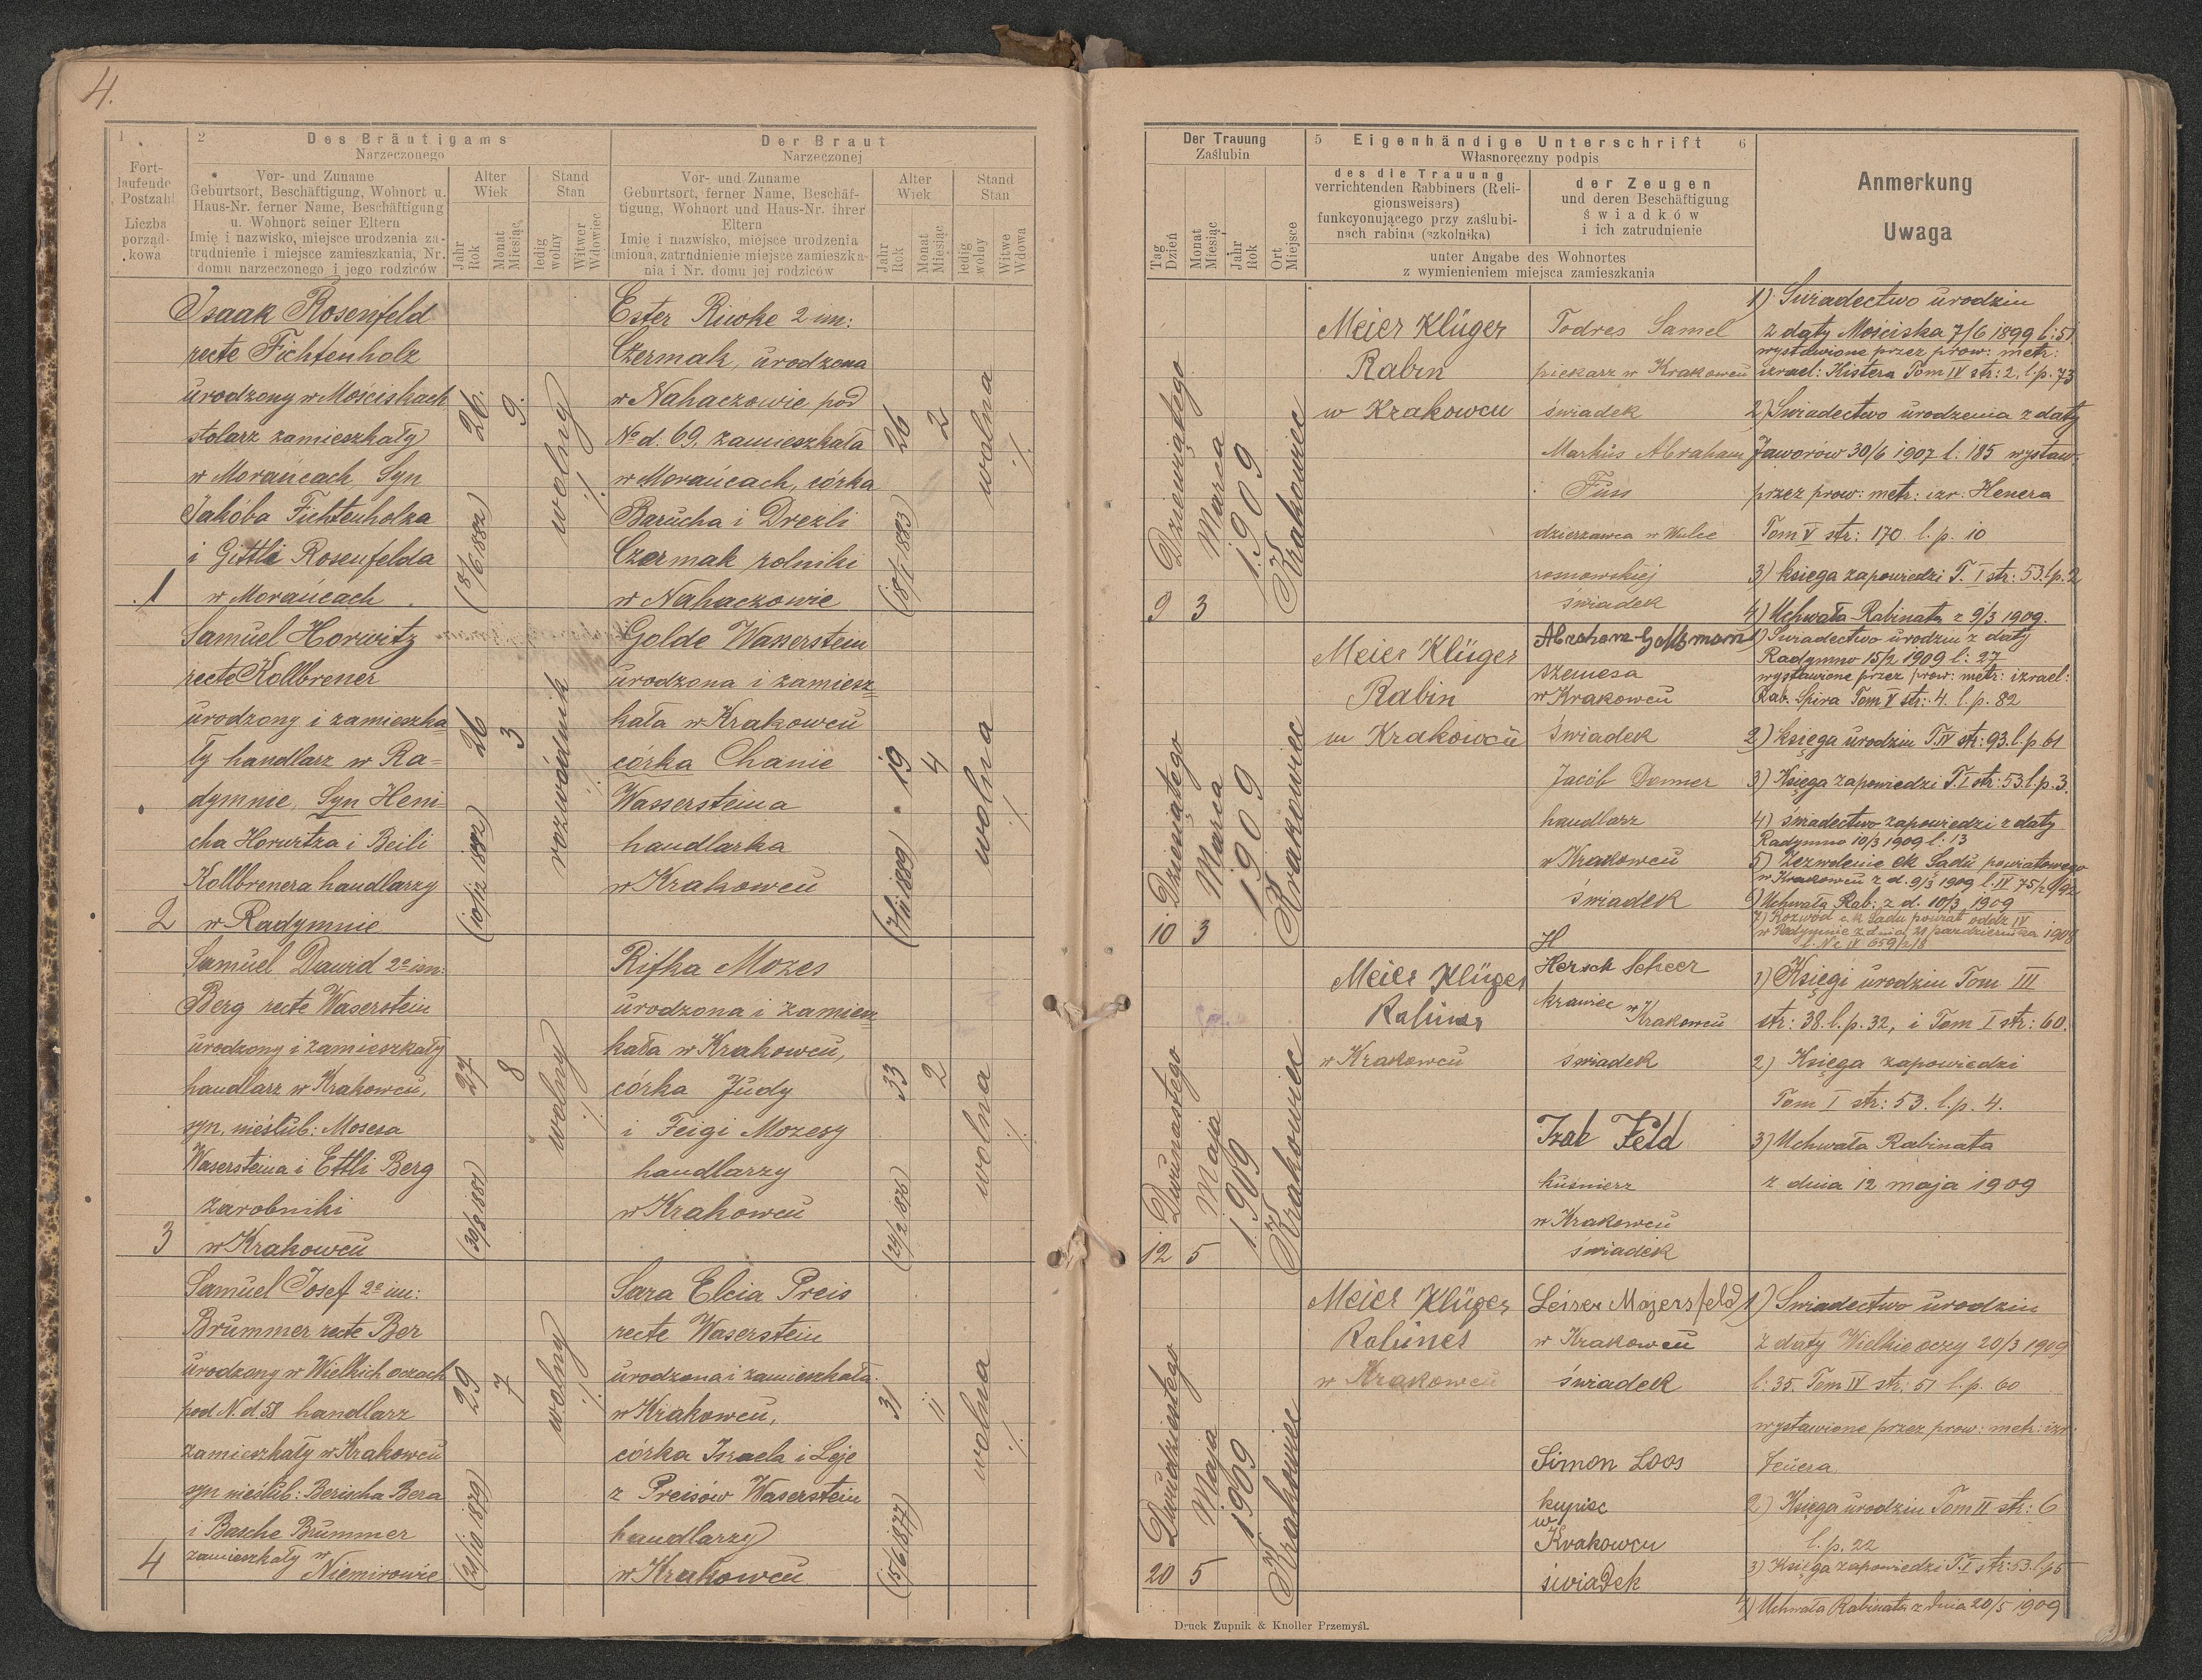 4.
1
2
Des Bräutigams
Narzeczonego
Der Braut
Narzeczonej
Fort-
laufende
Postzahl
Liczba
porząd-
kowa
Vor- und Zuname
Geburtsort, Beschäftigung, Wohnort u.
Haus-Nr. ferner Name, Beschäftigung
u. Wohnort seiner Eltern
Imię i nazwisko, miejsce urodzenia za-
trudnienie i miejsce zamieszkania, Nr.
domu narzeczonego i jego rodziców
Alter
Wiek
Jahr
Rok
Monat
Miesiąc
Stand
Stan
ledig
wolny
Witwer
Wdowiec
Vor- und Zuname
Geburtsort, ferner Name, Beschäf-
tigung, Wohnort und Haus-Nr. ihrer
Eltern
Imię i nazwisko, miejsce urodzenia
imiona, zatrudnienie miejsce zamieszka-
nia i Nr. domu jej rodziców
Alter
Wiek
Jahr
Rok
Monat
Miesiąc
Stand
Stan
ledig
wolny
Witwe
Wdowa
Isaak Rosenfeld
recte Fichtenholz
urodzony w Mościskach
stolarz zamieszkały
w Morańcach, Syn
Jakóba Fichtenholza
i Gittli Rosenfelda
1 w Morańcach
26. 9.
(8/6 1882)
wolny
Ester Riwke 2 im:
Czermak, urodzona
w Nahaczowie pod
No d. 69, zamieszkała
w Morańcach, córka
Barucha i Drezli
Czermak rolniki
w Nahaczowie
26 2
(18/1 1883)
wolna
Samuel Horwitz
recte Kollbrener
urodzony i zamieszka
ły handlarz w Ra=
dymnie, Syn Heni
cha Horwitza i Beili
Kollbrenera handlarzy
2 w Radymnie
26 3
(10/12 1882)
rozwódnik
Golde Wasserstein
urodzona i zamiesz=
kała w Krakowcu
córka Chanie
Wassersteina
handlarka
w Krakowcu
19 4
(7/11 1889)
wolna
Samuel Dawid 2e im:
Berg recte Waserstein
urodzony i zamieszkały
handlarz w Krakowcu,
syn, nieślub: Mosesa
Wasersteina i Ettli Berg
zarobniki
3 w Krakowcu
27 8
(30/8 1881)
wolny
Rifka Mozes
urodzona i zamiesz
kała w Krakowcu,
córka Judy
i Feigi Mozesy
handlarzy
w Krakowcu
33 2
(24/2 1876)
wolna
Samuel Josef 2e im:
Brummer recte Ber
urodzony w Wielkich oczach
pod N. d. 58 handlarz
zamieszkały w Krakowcu
syn nieślub: Berischa Bera
i Basche Brummer
4 zamieszkały w
Niemirowie
29 7
(21/10 1879)
wolny
Sara Elcia Preis
recte Waserstein
urodzona i zamieszkała
w Krakowcu,
córka Israela i Leje
z Preisów Waserstein
handlarzy
w Krakowcu
31 11
(15/6 1877)
wolna
Der Trauung
Zaślubin
Tag
Dzień
Monat
Miesiąc
Jahr
Rok
Ort
Miejsce
5 Eigenhändige Unterschrift 6
Własnoręczny podpis
des die Trauung
verrichtenden Rabbiners (Reli-
gionsweisers)
funkcyonującego przy zaślubi-
nach rabina (szkolnika)
der Zeugen
und deren Beschäftigung
świadków
i ich zatrudnienie
unter Angabe des Wohnortes
z wymienieniem miejsca zamieszkania
Anmerkung
Uwaga
Dziewiątego
Marca
1909
Krakowiec
9 3
Meier Klüger
Rabin
w Krakowcu
Todres Samel
piekarz w Krakowcu
świadek
Markus Abraham
Fuss
dzierzawca w Wulce
rosnowskiej
świadek
1) Świadectwo urodzin
z daty Mościska 7/6 1899 l: 51
wystawione przez prow: metr:
izrael: Kistera Tom IV str: 2, l. p. 73
2) Świadectwo urodzenia z daty
Jaworów 30/6 1907 l: 185 wystaw.
przez prow: metr: izr: Henera
Tom V str: 170 l. p. 10
3) księga zapowiedzi T. I str: 53. lp. 2
4) Uchwała Rabinata z 9/3 1909.
Dziesiątego
Marca
1909
Krakowiec
10 3
Meier Klüger
Rabin
w Krakowcu
szemesa
w Krakowcu
świadek
Jacób Donner
handlarz
w Krakowcu
świadek
1) Świadectwo urodzin z daty
Radymno 15/2 1909 l: 27
wystawione przez prow: metr: izrael:
Rab. Spira Tom V str: 4. l. p. 82
2) księga urodzin T. IV str: 93. l. p 61
3) Księga zapowiedzi T. I str: 53. l. p. 3.
4) świadectwo zapowiedzi z daty
Radymno 10/3 1909 l: 13
5) Zezwolenie ck Sadu powiatowego
w Krakowcu z d. 9/3 1909 l. IV
6) Uchwała Rab: z d. 10/3 1909
7) Rozwód c. k Sadu powiat oddz IV
w Radymnie z dnia 21 pazdziernika 1908
Dwunastego
Maja
1909
Krakowiec
12 5
Meier Klüger
Rabiner
w Krakowcu
H
Hersch Scheer
krawiec w
Krakowcu
świadek
Izak Feld
kuśnierz
w Krakowcu
świadek
1) Księgi urodzin Tom III
str: 38. l. p. 32, i Tom I str: 60.
2) Księga zapowiedzi
Tom I str: 53. l. p. 4.
3) Uchwała Rabinata
z dnia 12 maja 1909
Dwudziestego
Maja
1909
Krakowiec
20 5
Meier Klüger
Rabiner
w Krakowcu
Leiser Majersfeld
w Krakowcu
świadek
Simon Loos
kupiec
w
Krakowcu
świadek
1) Świadectwo urodzin
z daty Wielkie oczy 20/3 1909
l: 35. Tom IV str: 51 l. p. 60
wystawione przez prow: metr: izr:
Feuera
2) Księga urodzin Tom II str: 6
l. p. 22
3) Księga zapowiedzi T. I str: 53. l. p 5
4) Uchwała Rabinata z dnia 20/5 1909
Druck Żupnik & Knoller Przemyśl.